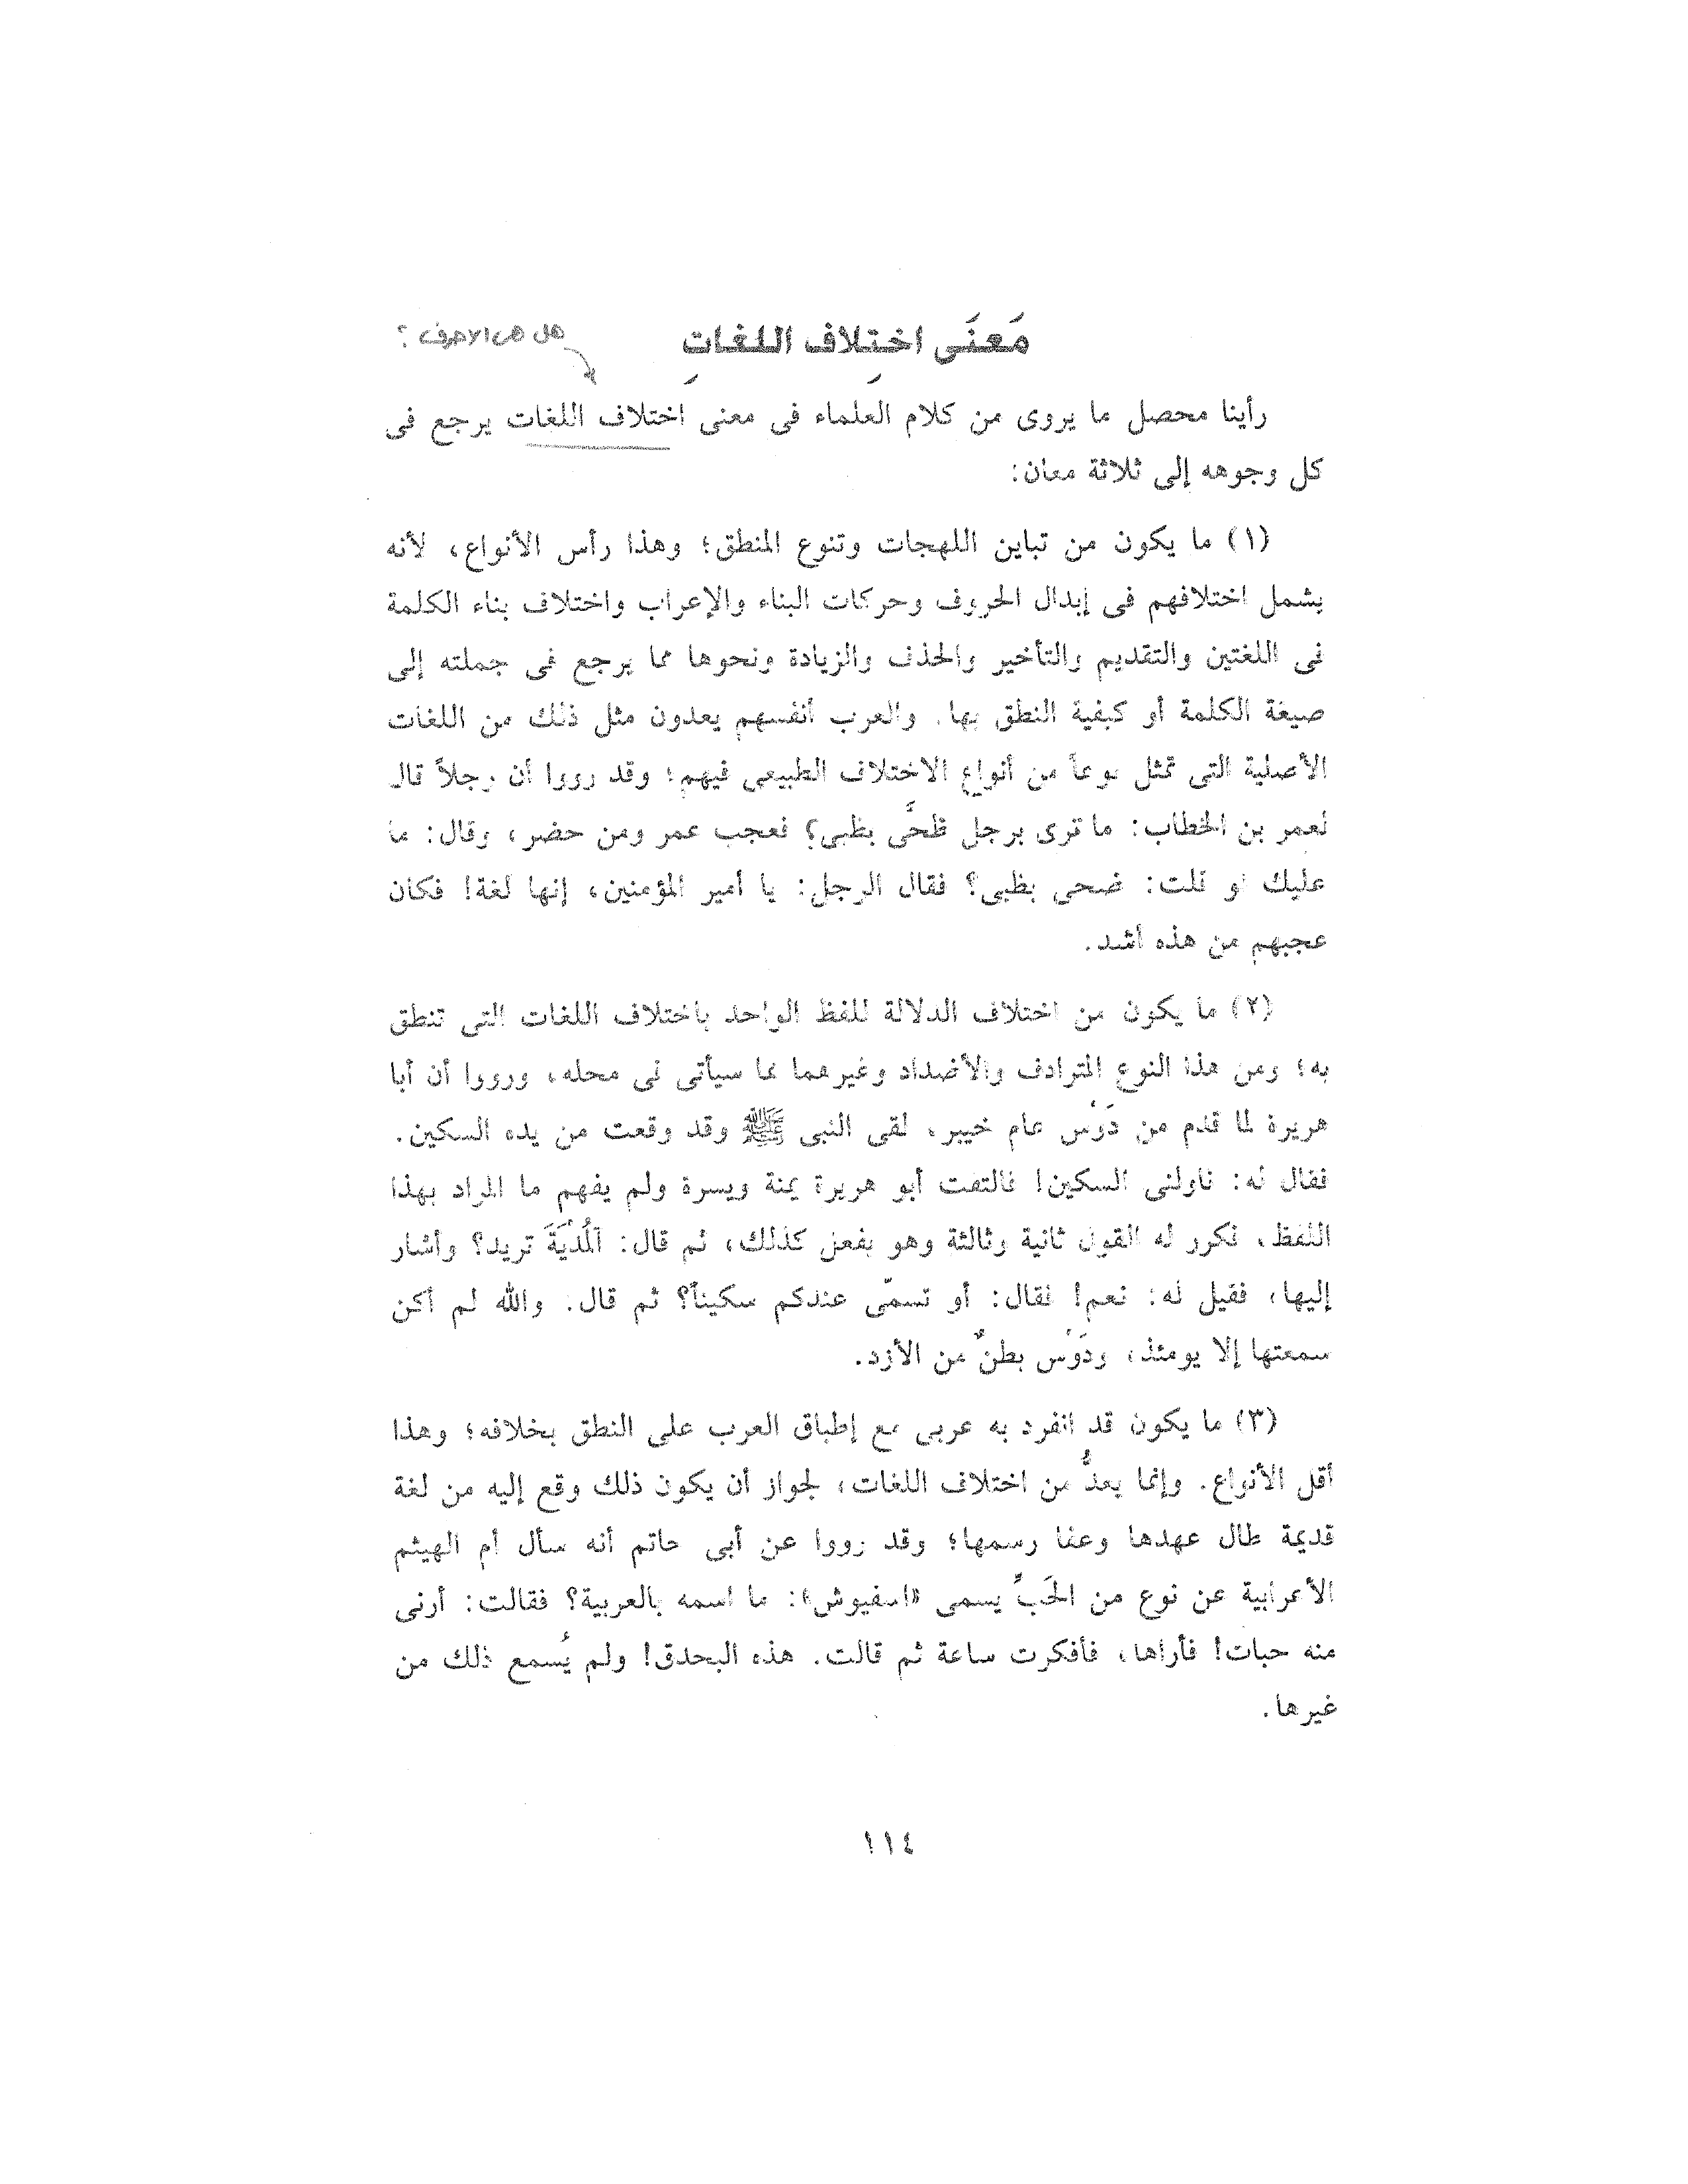 مَعنَى اختِلاف اللغاتِ
هل هى الاحرف ؟
رأينا محصل ما يروى من كلام العلماء فى معنى اختلاف اللغات يرجع فى
كل وجوهه إلى ثلاثة معان:
(١) ما يكون من تباين اللهجات وتنوع المنطق؛ وهذا رأس الأنواع، لأنه
يشمل اختلافهم فى إبدال الحروف وحركات البناء والإعراب واختلاف بناء الكلمة
فى اللغتين والتقديم والتأخير والحذف والزيادة ونحوها مما يرجع فى جملته إلى
صيغة الكلمة أو كيفية النطق بها. والعرب أنفسهم يعدون مثل ذلك من اللغات
الأصلية التى تمثل نوعاً من أنواع الاختلاف الطبيعى فيهم؛ وقد رووا أن رجلاً قال
لعمر بن الخطاب: ما ترى برجل ظحَّى بظبى؟ فعجب عمر ومن حضر، وقال: ما
عليك لو قلت: ضحى بظبى؟ فقال الرجل: يا أمير المؤمنين، إنها لغة! فكان
عجبهم من هذه أشد.
(٢) ما يكون من اختلاف الدلالة للفظ الواحد باختلاف اللغات التى تنطق
به؛ ومن هذا النوع المترادف والأضداد وغيرهما مما سيأتى فى محله، ورووا أن أبا
هريرة لما قدم من دَوْس عام خيبر، لقى النبى ﷺ وقد وقعت من يده السكين.
فقال له: ناولنى السكين! فالتفت أبو هريرة يمنة ويسرة ولم يفهم ما المراد بهذا
اللفظ، فكرر له القول ثانية وثالثة وهو يفعل كذلك، ثم قال: آلمُدْيَةَ تريد؟ وأشار
إليها، فقيل له: نعم! فقال: أو تسمّى عندكم سكيناً؟ ثم قال: والله لم أكن
سمعتها إلا يومئذ، ودَوْس بطنٌ من الأزد.
(٣) ما يكون قد انفرد به عربى مع إطباق العرب على النطق بخلافه؛ وهذا
أقل الأنواع. وإنما يعدُّ من اختلاف اللغات، لجواز أن يكون ذلك وقع إليه من لغة
قديمة طال عهدها وعفا رسمها؛ وقد رووا عن أبى حاتم أنه سأل أم الهيثم
الأعرابية عن نوع من الحَبِّ يسمى «اسفيوش»: ما اسمه بالعربية؟ فقالت: أرنى
منه حبات! فأراها، فأفكرت ساعة ثم قالت. هذه البحدق! ولم يُسمع ذلك من
غيرها.
١١٤